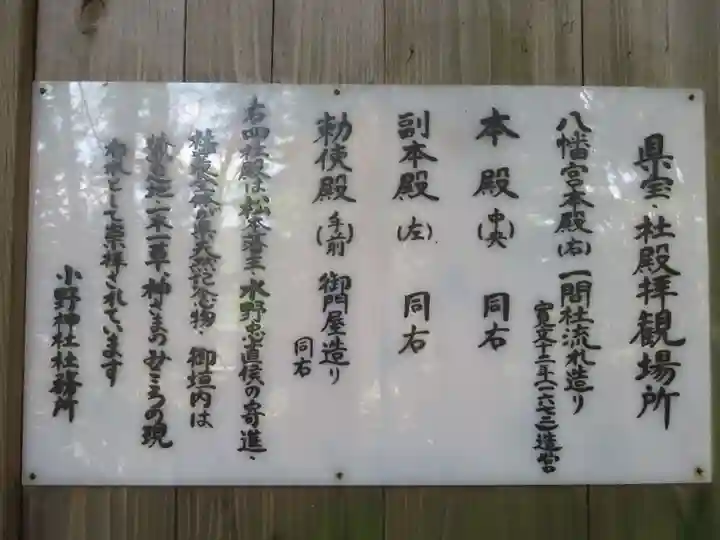 県宝・社殿拝観場所
八幡宮本殿(右)一間社流れ造り
寛文十二年(一六七二)造営
本殿(中央) 同右
副本殿(左) 同右
勅使殿(手前) 御門屋造り
同右
右四社殿は松本藩主・水野忠直侯の寄進・
社叢全体が県天然記念物 御垣内は
一木一草、神さまのみこころの現
として崇拝されています
小野神社社務所